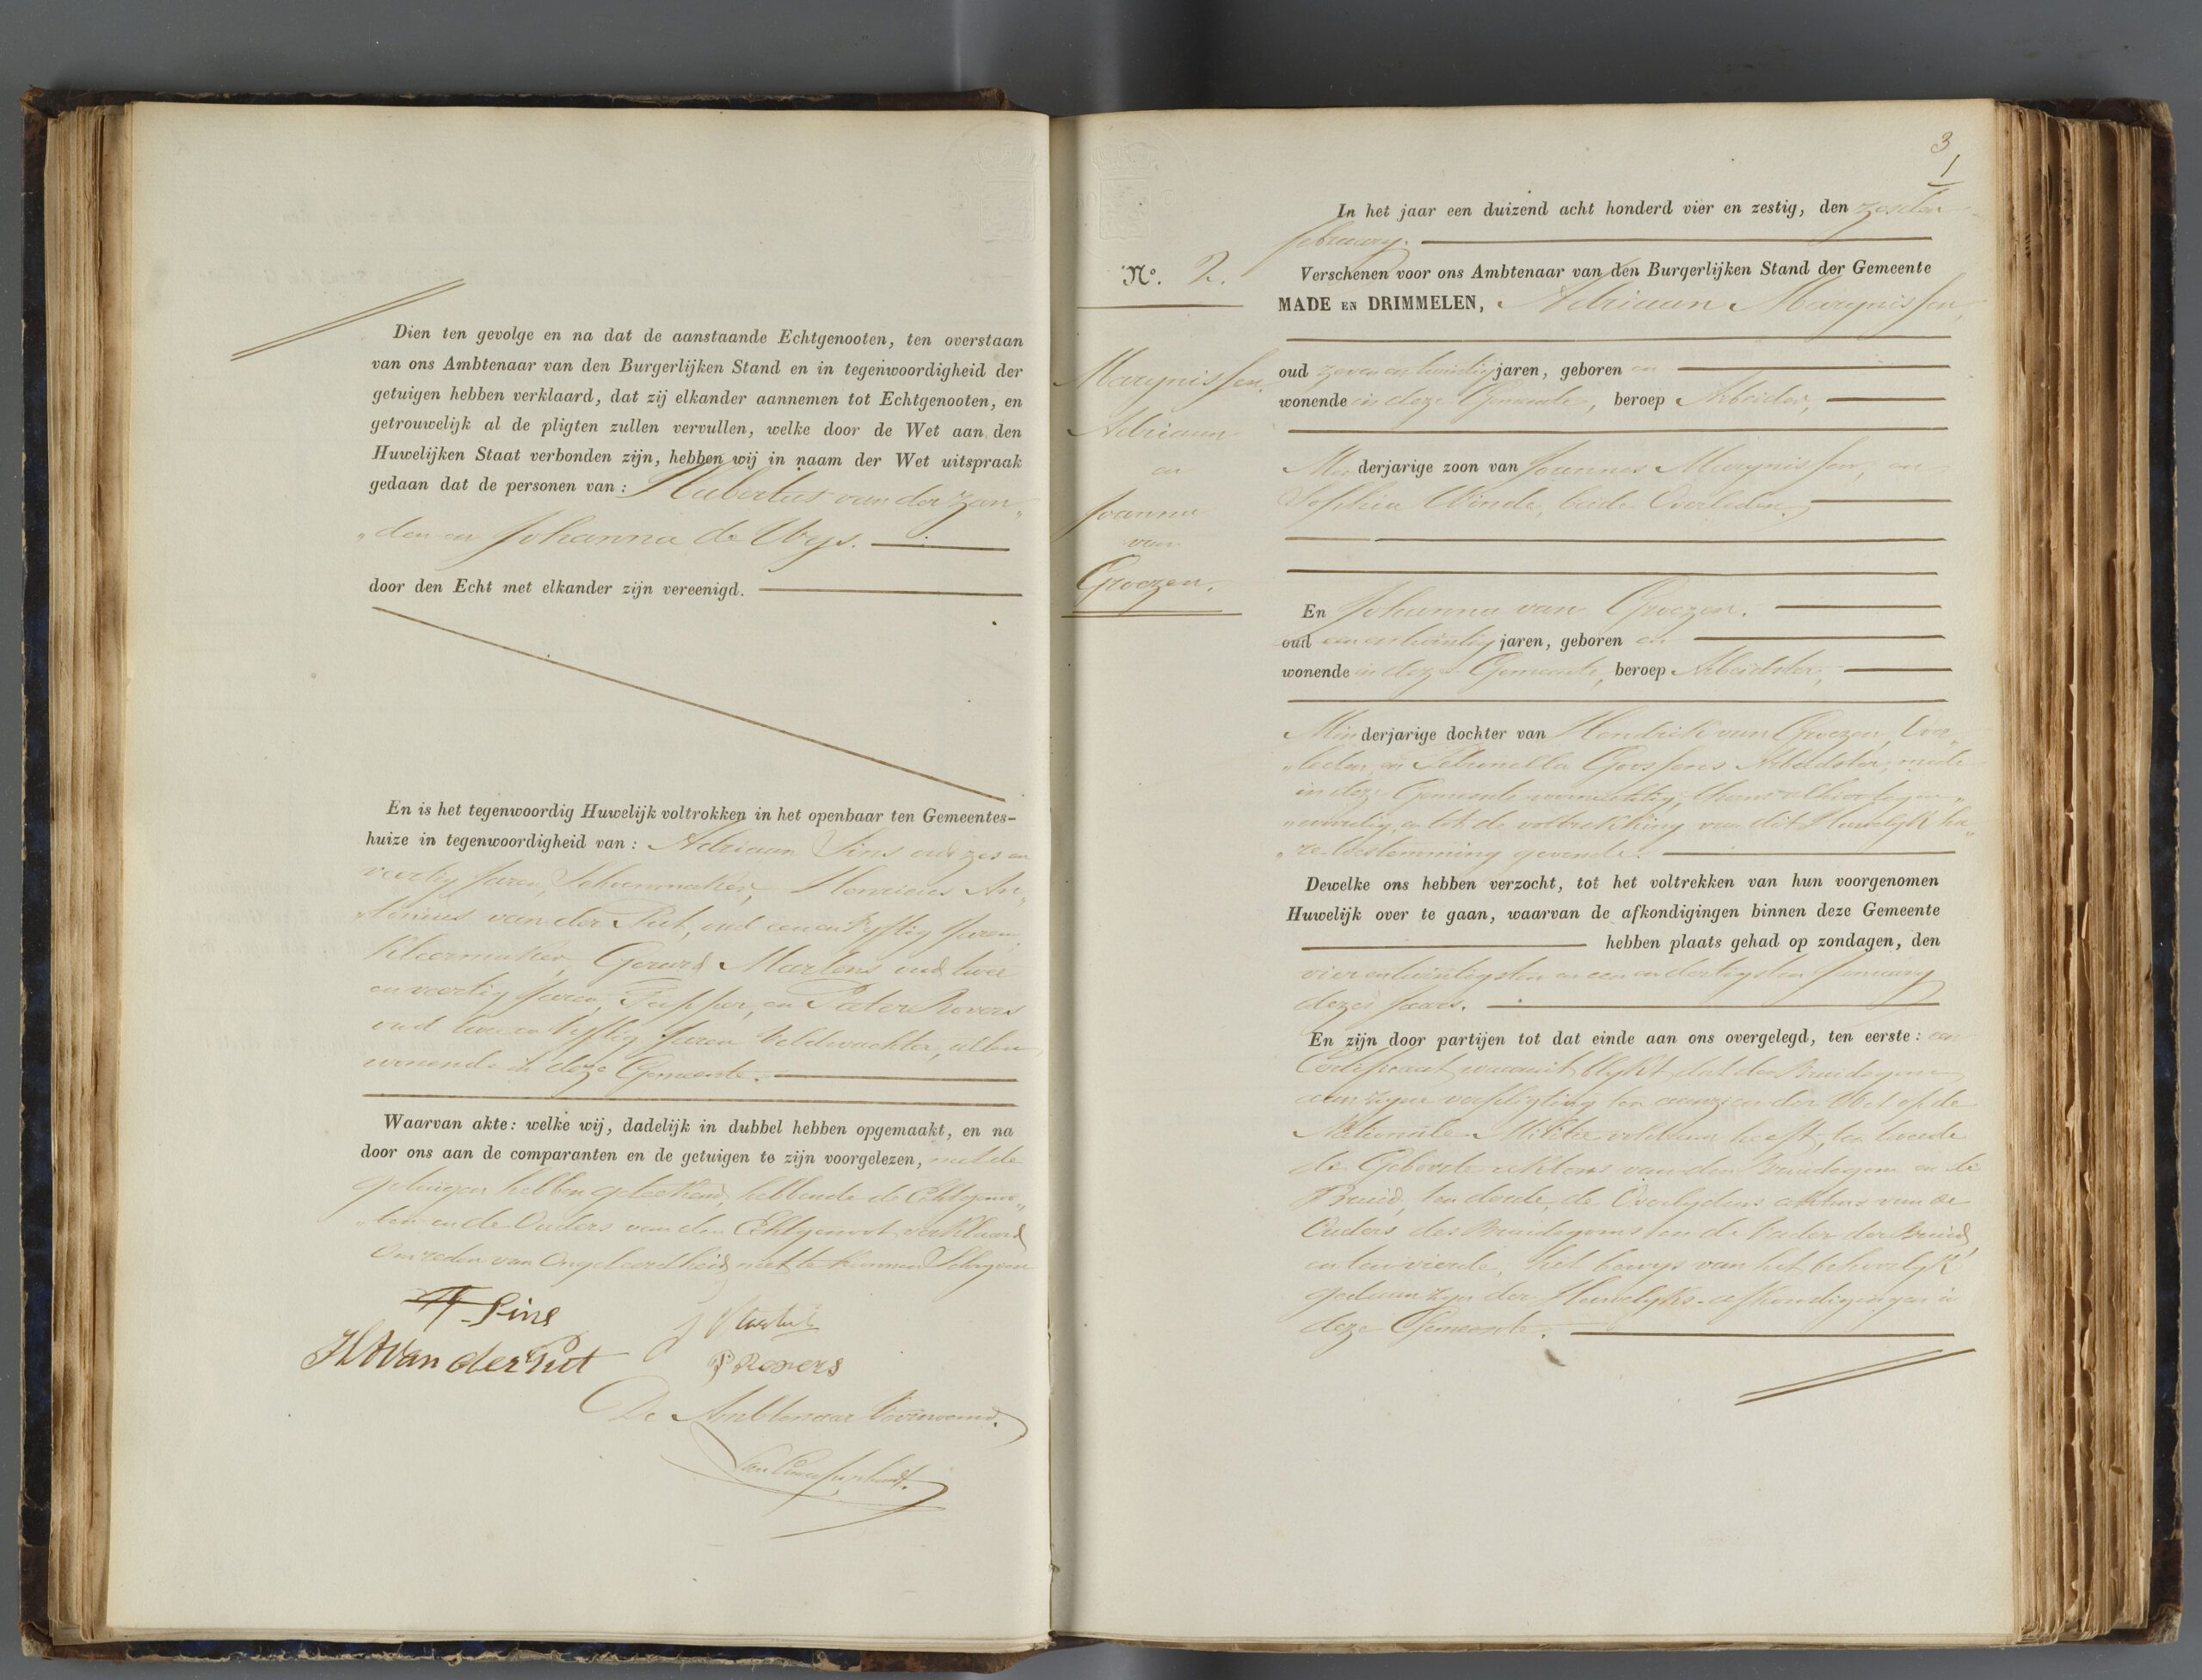 Dien ten gevolge en na dat de aanstaande Echtgenooten, ten overstaan
van ons Ambtenaar van den Burgerlijken Stand en in tegenwoordigheid der
getuigen hebben verklaard, dat zij elkander aannemen tot Echtgenooten, en
getrouwelijk al de pligten zullen vervullen, welke door de Wet aan den
Huwelijken Staat verbonden zijn, hebben wij in naam der Wet uitspraak
gedaan dat de personen van: Hubertus van der Zan„
„den en Johanna de Wijs.
door den Echt met elkander zijn vereenigd.
En is het tegenwoordig Huwelijk voltrokken in het openbaar ten Gemeentes-
huize in tegenwoordigheid van: Adriaan Sins oud zes en
veertig Jaren, Schoenmaker, Henricus An„
„tonius van der Put, oud een en vyftig Jaren
Kleermaker, Gerard Martens oud twee
en veertig Jaren, Tapper, en Pieter Rovers
oud twee en vyftig Jaren Veldwachter, allen
wonende in deze Gemeente.
Waarvan akte: welke wij, dadelijk in dubbel hebben opgemaakt, en na
door ons aan de comparanten en de getuigen te zijn voorgelezen, met de
getuigen hebben geteekend, hebbende de Echtgenoo„
„ten en de Ouders van den Echtgenoot verklaard
om reden van Ongeleerdheid niet te kunnen Schryven
A Sins
HA van der Put
P Rovers
De Ambtenaar Voornoemd.
3
1
No. 2.
Marynissen
Adriaan
en
Joanna
van
Groezen.
In het jaar een duizend acht honderd vier en zestig, den zesden
february.
Verschenen voor ons Ambtenaar van den Burgerlijken Stand der Gemeente
MADE EN DRIMMELEN, Adriaan Marynissen,
oud zeven en twintig jaren, geboren en
wonende in deze Gemeente, beroep Arbeider,
Meerderjarige zoon van Joannes Marynissen, en
Sophia Winde, beide Overleden.
En Johanna van Groezen.
oud een en twintig jaren, geboren en
wonende in deze Gemeente, beroep Arbeidster,
Minderjarige dochter van Hendrik van Groezen, Over„
„leden, en Petronella Goossens Arbeidster, mede
in deze Gemeente woonachtig, thans alhier tegen„
„woordig, en tot de voltrekking van dit Huwelyk ha„
„re toestemming gevende.
Dewelke ons hebben verzocht, tot het voltrekken van hun voorgenomen
Huwelijk over te gaan, waarvan de afkondigingen binnen deze Gemeente
hebben plaats gehad op zondagen, den
vier en twintigsten en een en dertigsten January
dezes Jaars.
En zijn door partijen tot dat einde aan ons overgelegd, ten eerste: een
Certificaat waaruit blykt dat den Bruidegom
aan zyne verpligting ten aanzien der Wet op de
Nationale Militie voldaan heeft, ten tweede
de Geboorte akten van den Bruidegom en de
Bruid, ten derde, de Overlydens akten van de
Ouders des Bruidegoms en de Vader der Bruid,
en ten vierde, het bewys van het behoorlyk
gedaan zyn der Huwelyks-afkondigingen in
deze Gemeente.